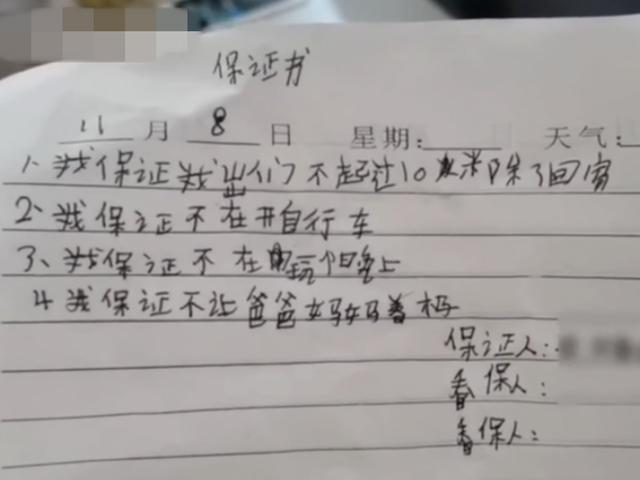 保证书
11月8日 星期: 天气:
1、我保证我出们不起过10米除了回家
2、我保证不在开自行车
3、我保证不在玩个晚上
4我保证不让爸爸妈妈着
保证人:
保人:
保人: